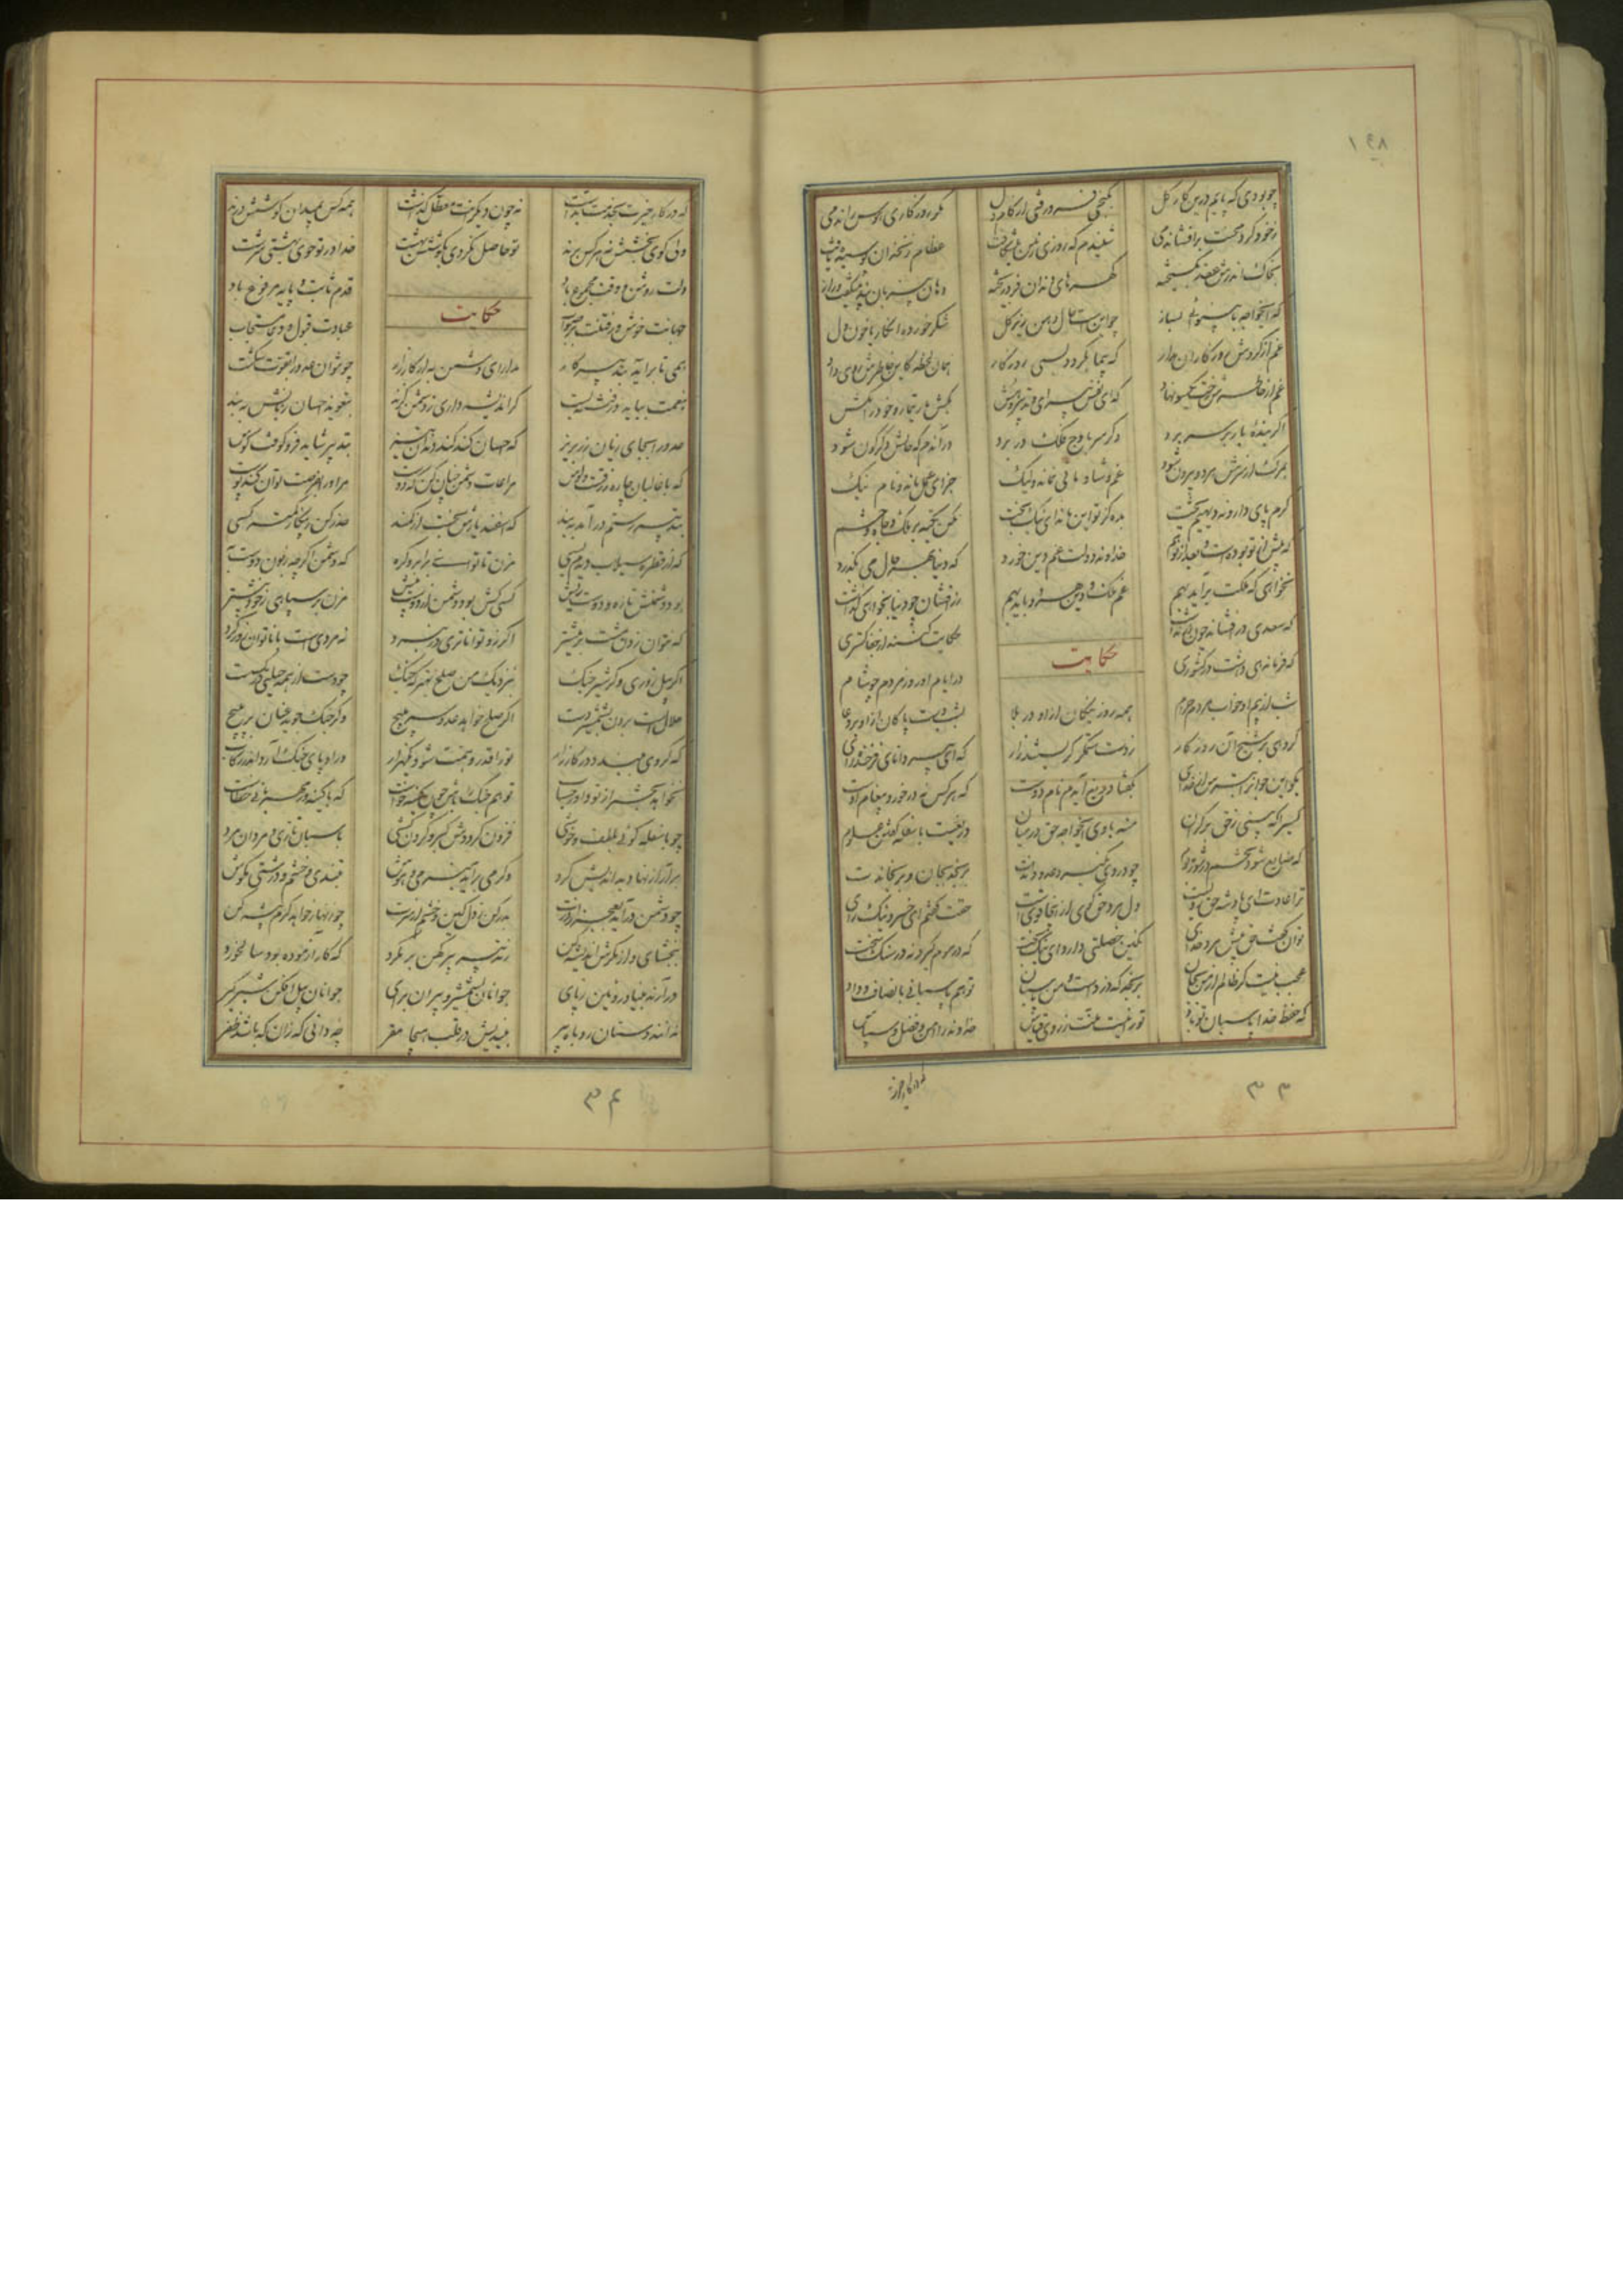 ۱۹۸
چو بودی که پایم درین کار گل بگنجی فرو رفتی از کام دل مگر روزگاری هوس راندمی
ز خود گرد محنت برافشاندمی شنیدم که روزی زمین می شکافت عظام زنخدان پوسیده یافت
بخاک اندرش عقد بگسیخته گهرهای دندان فرو ریخته دهان بی زبان پند میگفت و راز
که ایخواجه با بینوائی بساز چو اینست حال دهن زیر گل شکر خورده انگار یا خون دل
غم از گردش روزگاران مدار که بیما بگردد بسی روزگار همان لحظه کاین خاطرش روی داد
غم از خاطرش رخت یکسو نهاد که ای نفس بی رای و تدبیر و هش بکش بار تیمار و خود را مکش
اگر بنده بار بر سر برد وگر سر باوج فلک در برد در آندم که حالش دگرگون شود
بمرگ از سرش هر دو بیرون شود غم و شادمانی نماند ولیک جزای عمل ماند و نام نیک
کرم پای دارد نه دیهیم و تخت بده کز تو این ماند ای نیکبخت مکن تکیه بر ملک و جاه و حشم
که پیش از تو بودست و بعد از تو هم خداوند دولت غم دین خورد که دنیا بهر حال می بگذرد
نخواهی که ملکت برآید بهم غم ملک و دین هر دو باید بهم زرافشان چو دنیا بخواهی گذاشت
که سعدی درافشاند چون زر نداشت حکایت کنند از جفاگستری
حکایت
که فرماندهی داشت در کشوری در ایام او روز مردم چو شام
شب از بیم او خواب مردم حرام همه روز نیکان ازو در بلا بشب دست پاکان ازو بر دعا
گروهی بر شیخ آن روزگار ز دست ستمگر گرستند زار که ای پیر دانای فرخنده رای
بگو این جوانرا بترس از خدای بگفتا دریغ آیدم نام دوست که هر کس نه در خورد پیغام اوست
کسی را که بینی ز حق بر کران منه با وی ایخواجه حق در میان دریغست با سفله گفتن علوم
که ضایع شود تخم در شوره بوم چو در وی نگیرد عدو داندت برنجد بجان و برنجاندت
ترا عادت ای پادشه حق رویست دل مرد حق گوی ازینجا قویست حقت گفتم ای خسرو نیک رای
توان گفت حق پیش مرد خدای نگین خصلتی دارد ای نیکبخت که در موم گیرد نه در سنگ سخت
عجب نیست گر ظالم از من بجان برنجد که دزدست و من پاسبان تو هم پاسبانی بانصاف و داد
که حفظ خدا پاسبان تو باد تو را نیست منت ز روی قیاس خداوند را من و فضل و سپاس
۳۳
که در کار خیرت بخدمت بداشت نه چون دیگرانت معطل گذاشت همه کس بمیدان کوشش درند
ولی گوی بخشش نه هر کس برند تو حاصل نکردی بکوشش بهشت خدا در تو خوی بهشتی سرشت
دلت روشن و وقت مجموع باد قدم ثابت و پایه مرفوع باد
حکایت
حیاتت خوش و رفتنت بر صواب عبادت قبول و دعا مستجاب
همی تا برآید بتدبیر کار مدارای دشمن به از کارزار چو نتوان عدو را بقوت شکست
بنعمت بباید در فتنه بست گر اندیشه داری ز دشمن گزند بتعویذ احسان زبانش ببند
عدو را بجای زیان زر بریز که احسان کند کند دندان تیز بتدبیر شاید فرو کوفت کوس
که با غالبان چاره زرقست و لوس مراعات دشمن چنان کن که دوست مر او را بفرصت توان کند پوست
بتدبیر رستم درآمد ببند که اسفندیارش نجست از کمند حذر کن ز پیکار کمتر کسی
که از قطره سیلاب دیدم بسی مزن تا توانی بر ابرو گره که دشمن اگرچه زبون دوست به
بود دشمنش تازه و دوست ریش کسی کش بود دشمن از دوست بیش مزن بر سپاهی ز خود بیشتر
که نتوان زدن مشت بر نیشتر اگر زو تواناتری در نبرد نه مردی است با ناتوان زور کرد
اگر پیل زوری وگر شیر چنگ بنزدیک من صلح بهتر که جنگ چو دست از همه حیلتی در گسست
حلال است بردن بشمشیر دست اگر صلح خواهد عدو سر مپیچ وگر جنگ جوید عنان بر مپیچ
که گر وی ببندد در کارزار تو را قدر و هیبت شود یک هزار ور او پای جنگ آرد اندر رکاب
نخواهد بحشر از تو داور حساب تو هم جنگ را باش چون کینه خواست که با کینه ور مهربانی خطاست
چو با سفله گوئی بلطف و خوشی فزون گرددش کبر و گردن کشی باسبان تازی و مردان مرد
برآر از نهاد بداندیش گرد وگر می برآید بنرمی و هوش بتندی و خشم و درشتی مکوش
چو دشمن درآید بعجز از درت بدر کن ز دل کین و خشم از سرت چو زنهار خواهد کرم پیشه کن
ببخشای و از مکرش اندیشه کن ز تدبیر پیر کهن بر مگرد که کار آزموده بود سالخورد
درآرند بنیاد روئین ز پای جوانان بشمشیر و پیران برای جوانان پیل افکن شیر گیر
ندانند دستان روباه پیر بیندیش در قلب هیجا مفر چه دانی که زان که باشد ظفر
۳۴